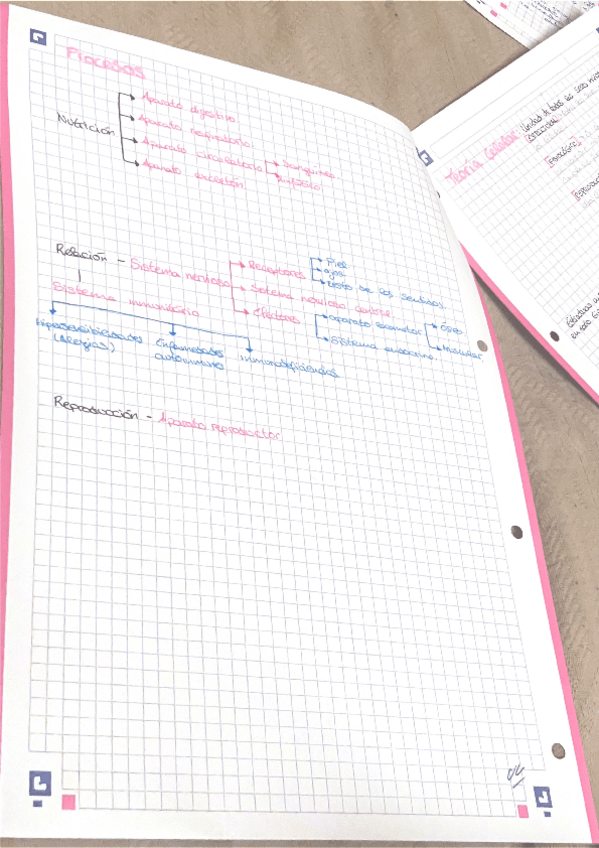 Procesos
Nutrición
Aparato digestivo
Aparato respiratorio
Aparato circulatorio
Sanguíneo
Linfático
Aparato excretor
Relación - Sistema nervioso
Receptores
Piel
ojos
resto de los sentidos.
Sistema nervioso central
Efectores
aparato locomotor
Óseo
Muscular
Sistema endocrino
Sistema inmunitario
Hipersensibilidades
(Alergias)
Enfermedades
autoinmunes
Inmunodeficiencias
Reproducción - Aparato reproductor
Teoría Celular: Unidad de todos los seres